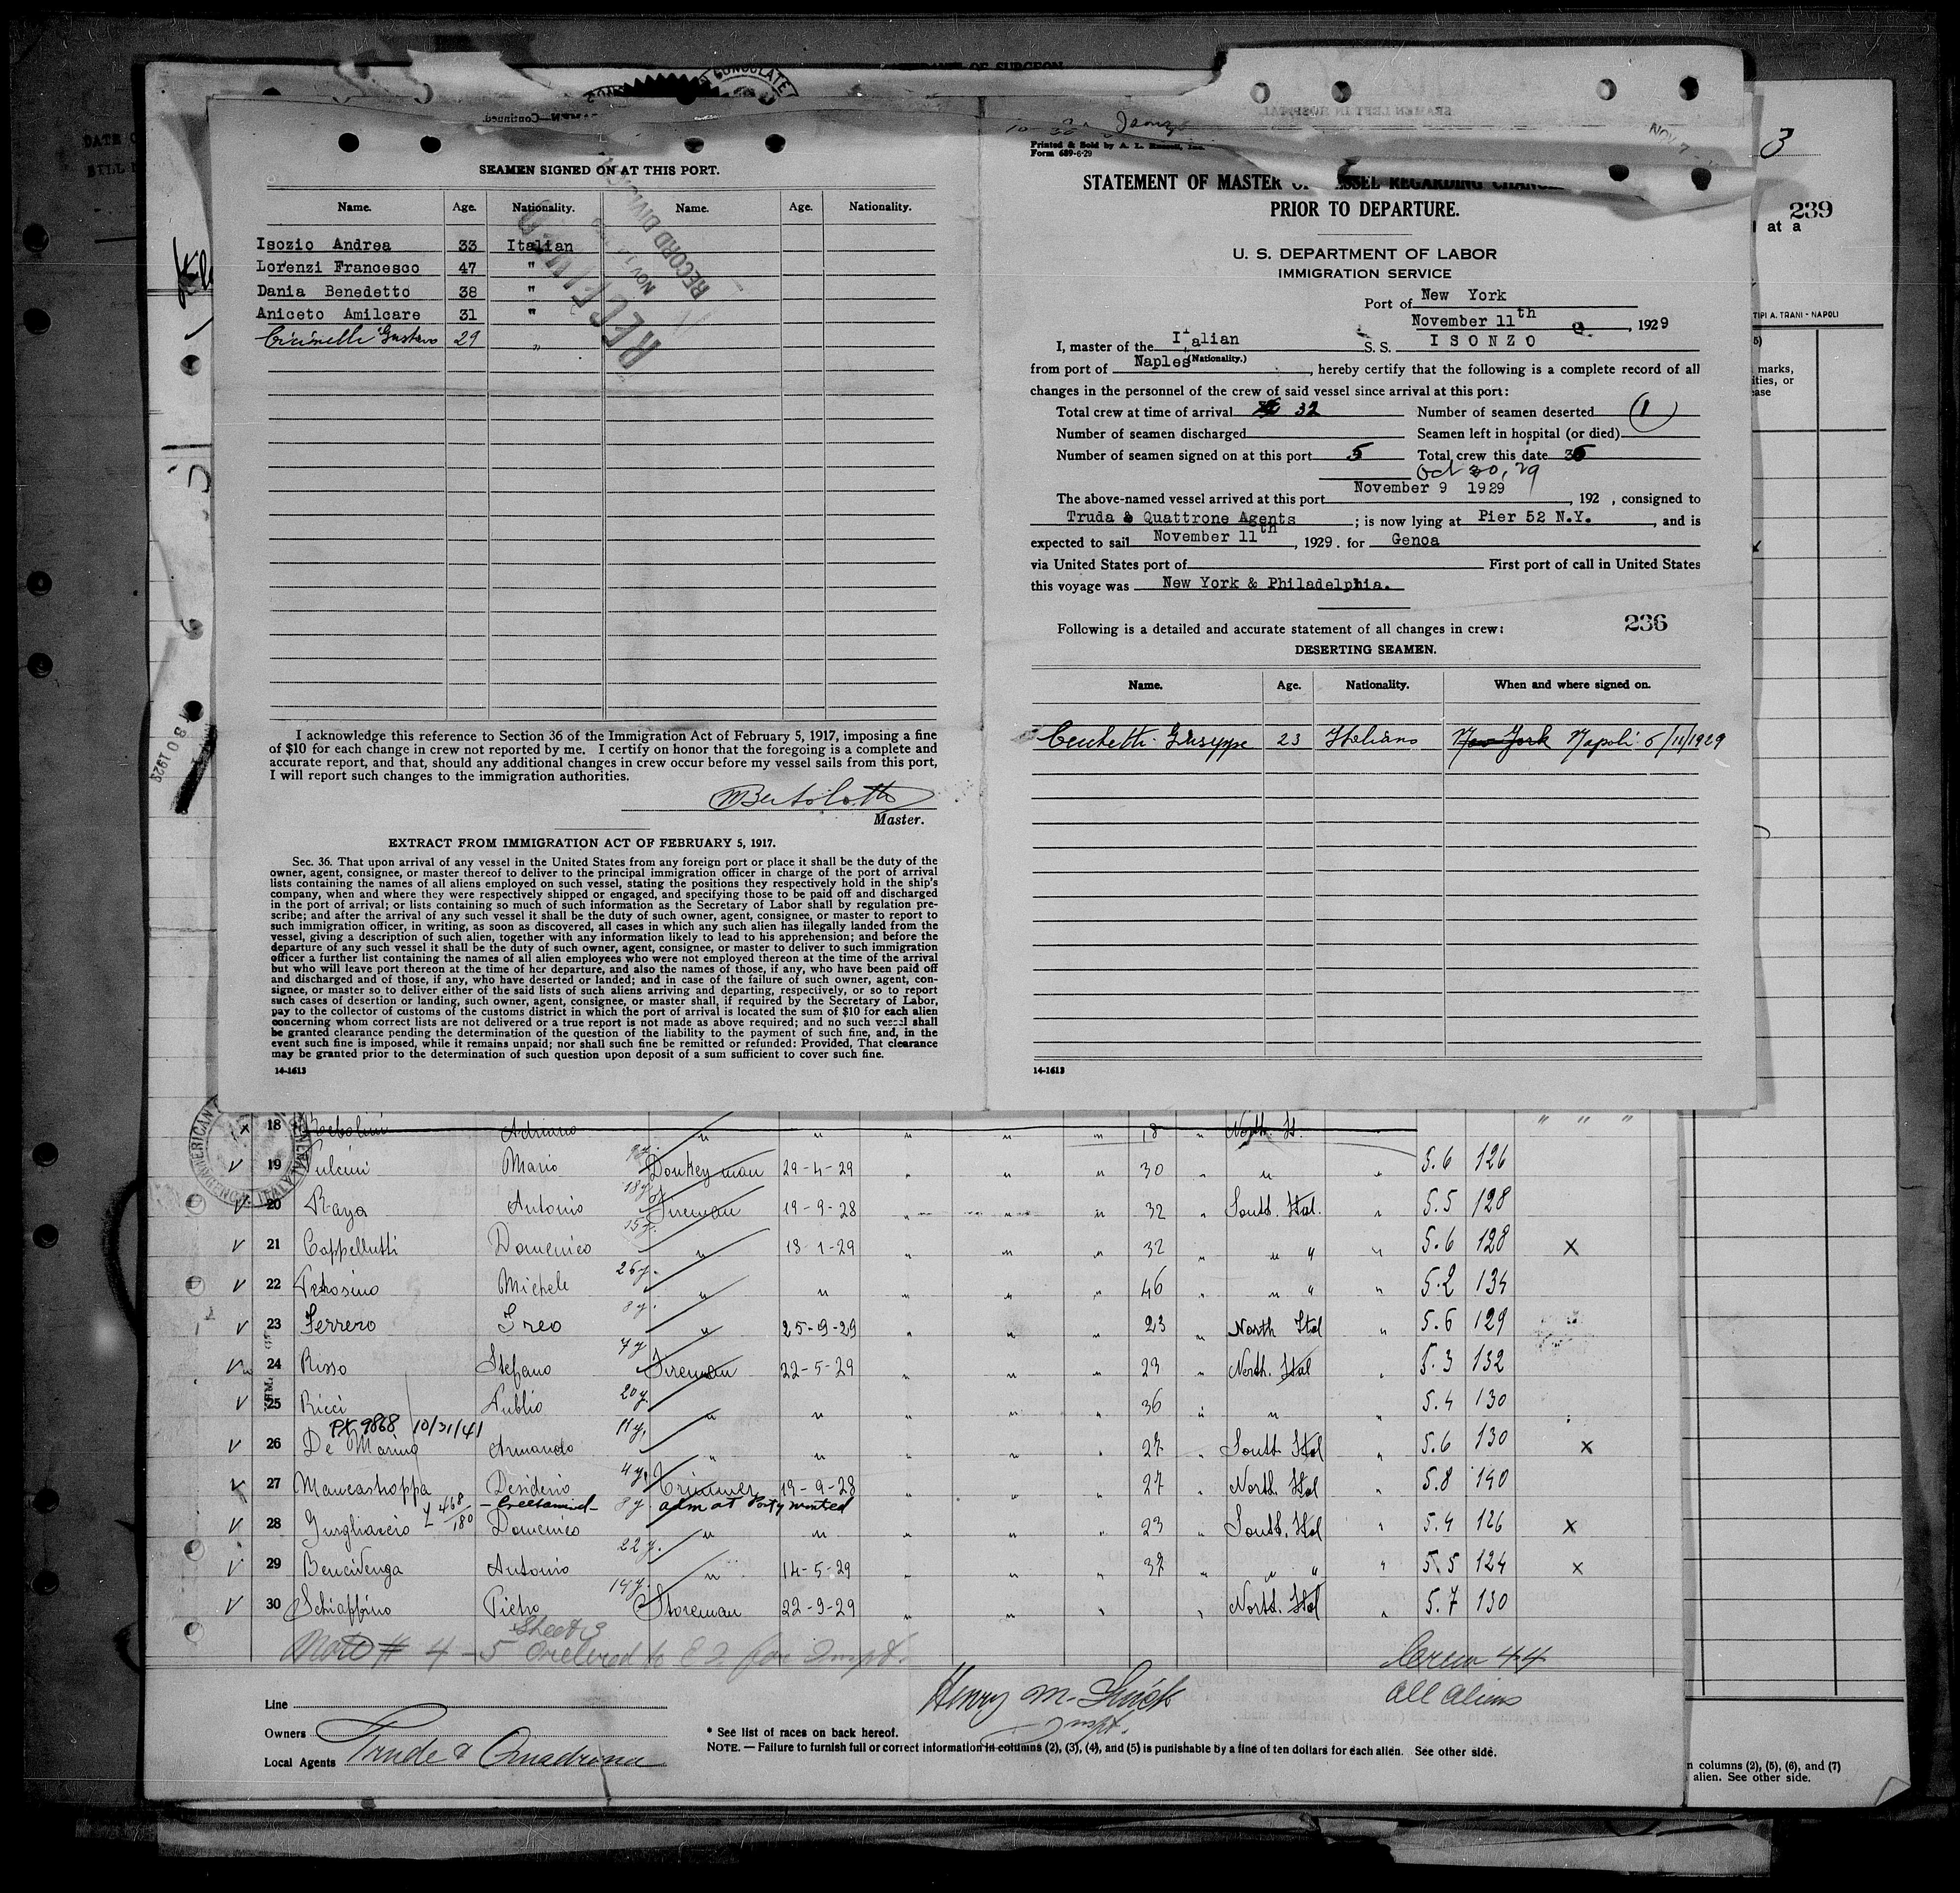 SEAMEN SIGNED ON AT THIS PORT.
Name. Age. Nationality. Name. Age. Nationality.
Isozio Andrea 33 Italian
Lorenzi Francesco 47 "
Dania Benedetto 38 "
Aniceto Amilcare 31 "
Cicinelli Gustavo 29 "
RECEIVED
NOV
RECORD DIVISION
I acknowledge this reference to Section 36 of the Immigration Act of February 5, 1917, imposing a fine
of $10 for each change in crew not reported by me. I certify on honor that the foregoing is a complete and
accurate report, and that, should any additional changes in crew occur before my vessel sails from this port,
I will report such changes to the immigration authorities.
Master.
EXTRACT FROM IMMIGRATION ACT OF FEBRUARY 5, 1917.
Sec. 36. That upon arrival of any vessel in the United States from any foreign port or place it shall be the duty of the
owner, agent, consignee, or master thereof to deliver to the principal immigration officer in charge of the port of arrival
lists containing the names of all aliens employed on such vessel, stating the positions they respectively hold in the ship's
company, when and where they were respectively shipped or engaged, and specifying those to be paid off and discharged
in the port of arrival; or lists containing so much of such information as the Secretary of Labor shall by regulation pre-
scribe; and after the arrival of any such vessel it shall be the duty of such owner, agent, consignee, or master to report to
such immigration officer, in writing, as soon as discovered, all cases in which any such alien has illegally landed from the
vessel, giving a description of such alien, together with any information likely to lead to his apprehension; and before the
departure of any such vessel it shall be the duty of such owner, agent, consignee, or master to deliver to such immigration
officer a further list containing the names of all alien employees who were not employed thereon at the time of the arrival
but who will leave port thereon at the time of her departure, and also the names of those, if any, who have been paid off
and discharged and of those, if any, who have deserted or landed; and in case of the failure of such owner, agent, con-
signee, or master so to deliver either of the said lists of such aliens arriving and departing, respectively, or so to report
such cases of desertion or landing, such owner, agent, consignee, or master shall, if required by the Secretary of Labor,
pay to the collector of customs of the customs district in which the port of arrival is located the sum of $10 for each alien
concerning whom correct lists are not delivered or a true report is not made as above required; and no such vessel shall
be granted clearance pending the determination of the question of the liability to the payment of such fine, and, in the
event such fine is imposed, while it remains unpaid; nor shall such fine be remitted or refunded: Provided, That clearance
may be granted prior to the determination of such question upon deposit of a sum sufficient to cover such fine.
14-1613
Printed & Sold by A. L.
Form 689-6-29
STATEMENT OF MASTER OF VESSEL REGARDING
PRIOR TO DEPARTURE.
U. S. DEPARTMENT OF LABOR
IMMIGRATION SERVICE
Port of New York
November 11th, 1929
I, master of the Italian S. S. ISONZO
(Nationality.)
from port of Naples, hereby certify that the following is a complete record of all
changes in the personnel of the crew of said vessel since arrival at this port:
Total crew at time of arrival 32 Number of seamen deserted 1
Number of seamen discharged Seamen left in hospital (or died)
Number of seamen signed on at this port 5 Total crew this date 36
Oct 30, 29
The above-named vessel arrived at this port November 9 1929, 192 , consigned to
Truda & Quattrone Agents; is now lying at Pier 52 N.Y., and is
expected to sail November 11th, 1929. for Genoa
via United States port of First port of call in United States
this voyage was New York & Philadelphia.
236
Following is a detailed and accurate statement of all changes in crew:
DESERTING SEAMEN.
Name. Age. Nationality. When and where signed on.
Giuseppe 23 Italiano New York Napoli 6/11/1929
14-1613
3
239
at a
TIPI A. TRANI - NAPOLI
marks,
ities, or
ease
18 Adriano " " " " " 18 " North. It.
19 Pulcini Mario Donkeyman 29-4-29 " " " 30 " " " 5.6 126
20 Raya Antonio Fireman 19-9-28 " " " 32 " South. Ital. " 5.5 128
21 Cappellutti Domenico " 13-1-29 " " " 32 " " " " 5.6 128 X
22 Petrosino Michele " " " " " 46 " " " 5.2 134
23 Ferrero Ireo " 25-9-29 " " " 23 " North Ital " 5.6 129
24 Risso Stefano Fireman 22-5-29 " " " 23 " North. Ital " 5.3 132
25 Ricci Publio " " " " " 36 " " 5.4 130
10/31/41
26 De Marino Armando " " " " " 27 " South Ital " 5.6 130 X
27 Desiderio Trimmer 19-9-28 " " " 27 " North. Ital " 5.8 140
28 Domenico " " " " " 23 " South. Ital " 5.4 126 X
29 Bencivenga Antonio " 14-5-29 " " " 37 " " " " 5.5 124 X
30 Schiaffino Pietro Storeman 22-9-29 " " " " North. Ital " 5.7 130
Crew 44
All aliens
Line
Owners
Local Agents
* See list of races on back hereof.
NOTE. — Failure to furnish full or correct information in columns (2), (3), (4), and (5) is punishable by a fine of ten dollars for each alien. See other side.
n columns (2), (5), (6), and (7)
alien. See other side.